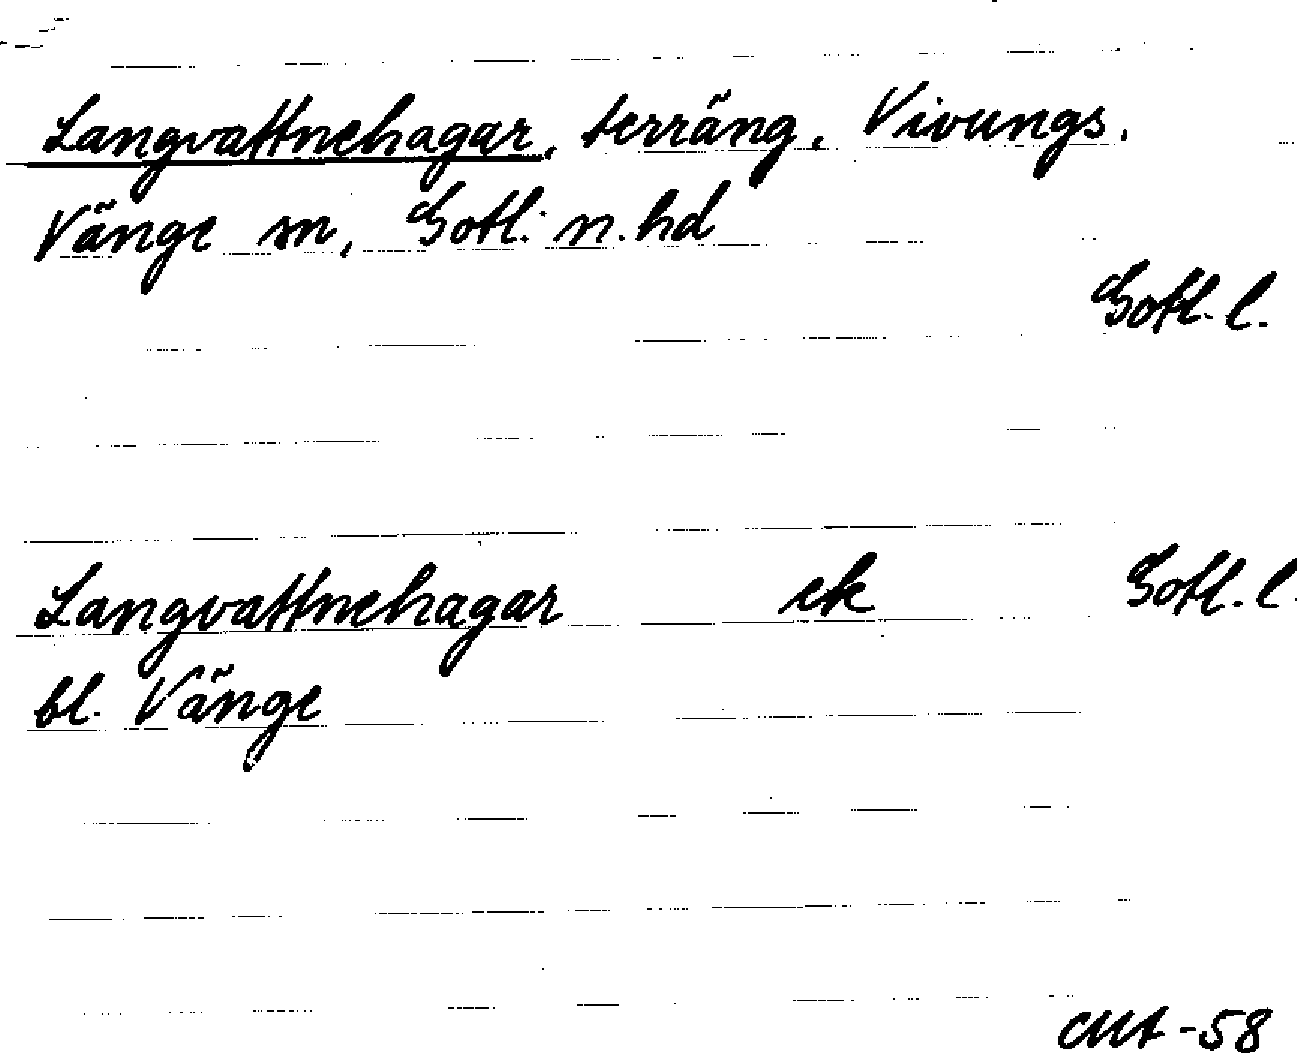 Langvattnehagar, terräng, Vivungs,
Vänge sn, Gotl: n. hd
Gotl. l.
Langvattnehagar ek Gotl. l.
bl. Vänge
CMt -58